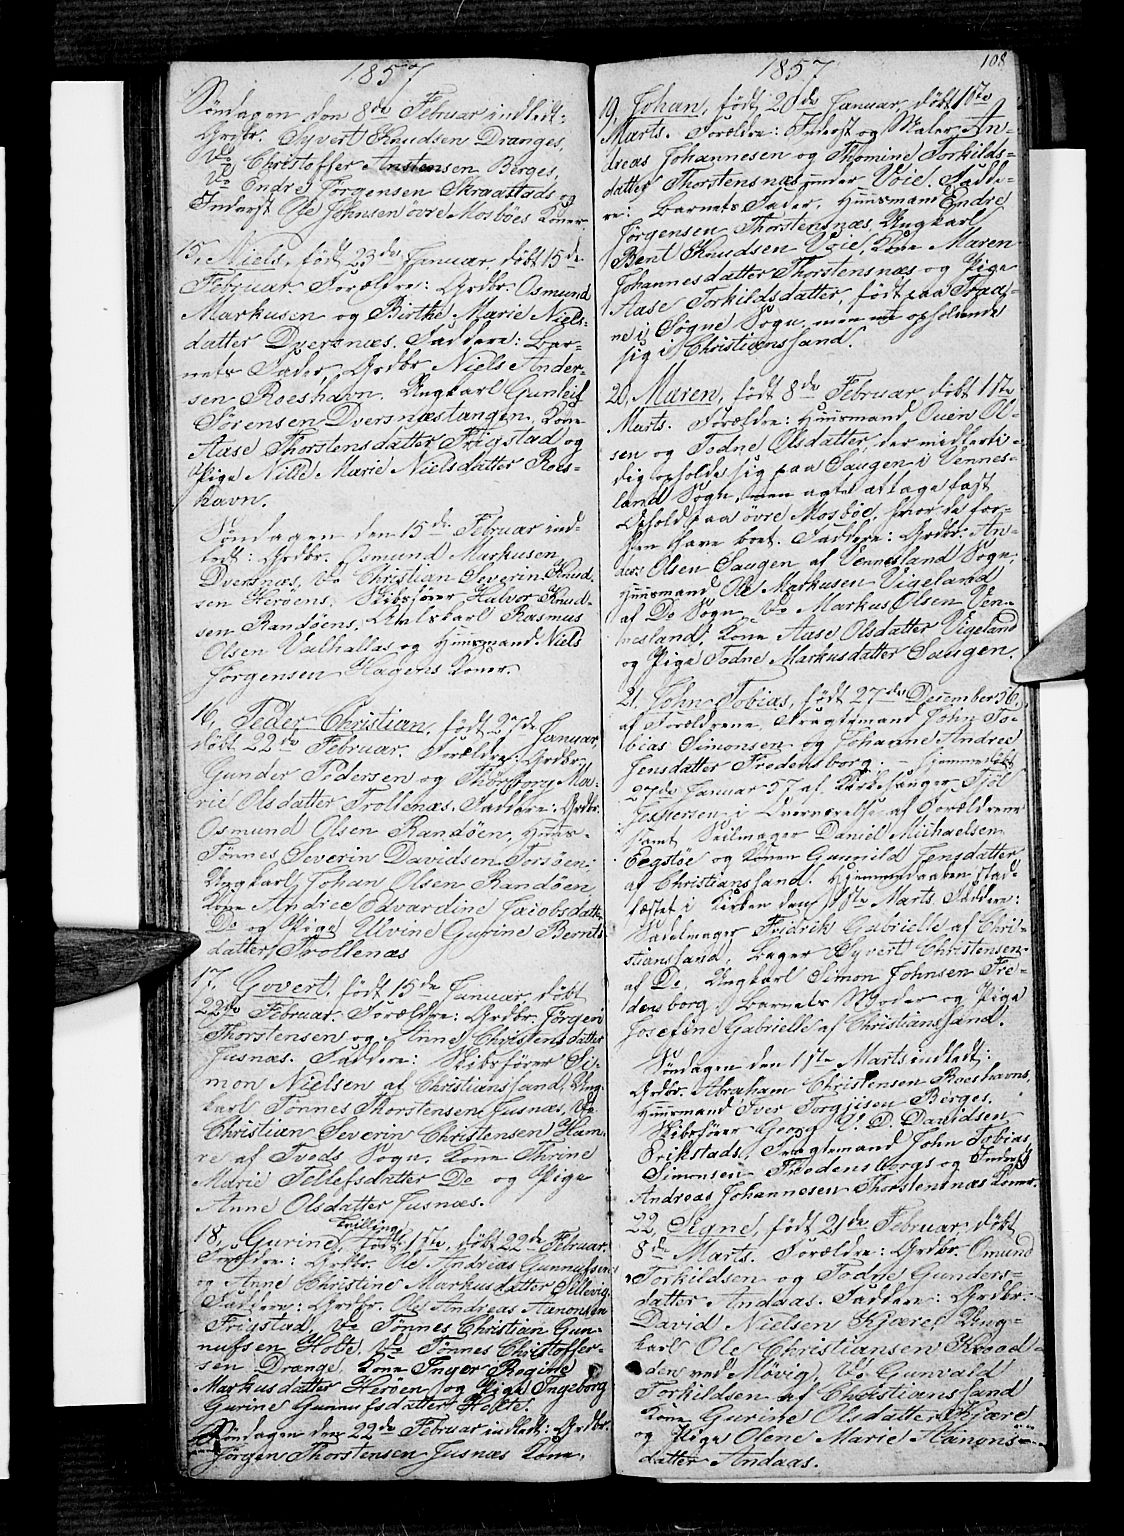 1857
Søndagen den 8de Februar indledt:
Grdbr. Syvert Knudsen Dranges,
Do Christoffer Anstensen Berges,
Do Endre Jørgensen Skraastads og
Inderst Ole Johnsen øvre Mosbøes Koner.
15, Niels, født 23de Januar, døbt 15de
Februar. Forældre: Grdbr. Osmund
Markusen og Birthe Marie Niels-
datter Dversnæs. Faddere: Bar-
nets Fader, Grdbr Niels Ander-
sen Roeshavn. Ungkarl Gunleif
Sørensen Dversnæstangen, Kone
Aase Thorstensdatter Frigstad og
Pige Nille Marie Nielsdatter Roes-
havn.
Søndagen den 15de Februar ind-
ledt: Grdbr. Osmund Markusen
Dversnæs, Do Christian Severin Knud-
sen Herøens, Skibsfører Halvor Knud-
sen Randøens, Karl Rasmus
Olsen Valhallas og Huusmand Niels
Jørgensen Hagens Koner.
16, Peder Christian, født 27de Januar,
døbt 22de Februar. Forældre: Grdbr.
Gunder Pedersen og Thørborg Ma-
rie Olsdatter Trollenæs. Faddere: Grdbr.
Osmund Olsen Randøen, Huus-
Tønnes Severin Davidsen Torsøen,
Ungkarl Johan Olsen Randøen
Kone Andrea Edvardine Jacobsdatter
Do og Pige Ulvine Gurine Bernts-
datter Trollenæs
17, Govert, født 15de Januar, døbt
22de Februar. Forældre: Grdbr. Jørgen
Thorstensen og Anne Christensdatter
Jusnæs. Faddere: Skibsfører Si-
mon Nielsen af Christianssand, Ung-
karl Tønnes Thorstensen Jusnæs, Do
Christian Severin Christensen Ham-
re af Tveds Sogn. Kone Thrine
Marie Tellefsdatter Do og Pige
Anne Olsdatter Jusnæs.
Tvilling
18, Gurine, født 1ste, døbt 22de Februar.
Forældre: Grdbr. Ole Andreas Gunnufsen
og Anne Christine Markusdatter Sellevig.
Faddere: Grdbr. Ole Andreas Aanonsen
Frigstad, Do Tønnes Christian Gun-
nufsen Holte, Do Tønnes Christoffer-
sen Drange, Kone Inger Regine
Markusdatter Herøen og Pige Ingeborg
Gurine Gunnufsdatter Holte.
Søndagen den 22de Februar indledt: Grdbr.
Jørgen Thorstensen Jusnæs Kone.
1857
108
19, Johan, født 20de Januar, døbt 1ste
Marts. Forældre: Inderst og Maler An-
dreas Johannesen og Thomine Torkilds-
datter Thorstensnæs under Voie. Fadde-
re: Barnets Fader, Huusmand Endre
Jørgensen Thorstensnæs Ungkarl
Bent Knudsen Voie, Kone Maren
Johannesdatter Thorstensnæs og Pige
Aase Torkildsdatter, født paa Traa-
ne i Søgne Sogn, men nu opholdende
sig i Christianssand.
20, Maren, født 8de Februar, døbt 1ste
Marts. Forældre: Huusmand Ouen Ol-
sen og Todne Olsdatter, der midlerti-
dig opholde sig paa Saugen i Vennes-
land Sogn, men agte at tage fast
Ophold paa øvre Mosbøe, hvor de for-
hen have boet. Faddere: Grdbr. An-
ders Olsen Saugen af Vennesland Sogn,
Huusmand Ole Markusen Vigeland
af Do Sogn, Do Markus Olsen Ven-
nesland, Kone Aase Olsdatter Vigeland
og Pige Todne Markusdatter Saugen.
21, John Tobias, født 27de December 56,
af Forældrene Fragtemand John To-
bias Simonsen og Johanne Andrea
Jensdatter Fredensborg. - Hjemmedøbt
27de Januar 57 af Kirkesanger Fjøl
Jespersen i Overværelse af Forældrene
samt Seilmager Daniel Michaelsen
Eegstøe og Konen Gunnild Jensdatter
af Christianssand. Hjemmedaaben stad-
fæstet i Kirken den 1ste Marts. Faddere:
Sadelmager Fridrik Gabrielle af Chri-
stianssand, Bager Syvert Christensen
af Do, Ungkarl Simon Johnsen Fre-
densborg, Barnets Moder og Pige
Josefine Gabrielle af Christianssand.
Søndagen den 1ste Marts indledt:
Grdbr. Abraham Christensen Roeshavns,
Huusmand Iver Torgjisen Berges,
Skibsfører Georg V. D. Davidsen
Erikstads, Fragtemand John Tobias
Simonsen Fredensborgs og Inderst
Andreas Johannesen Thorstensnæs Koner.
22, Signe, født 21de Februar døbt
8de Marts. Forældre: Grdbr. Omund
Torkildsen og Todne Gunders-
datter Andaas. Faddere: Grdbr.
David Nielsen Kjære, Ung-
karl Ole Christiansen Kraad-
den ved Møvig, Do Gunvald
Torkildsen af Christianssand
Kone Gurine Olsdatter Kjære
og Pige Olene Marie Aanons-
datter Andaas.